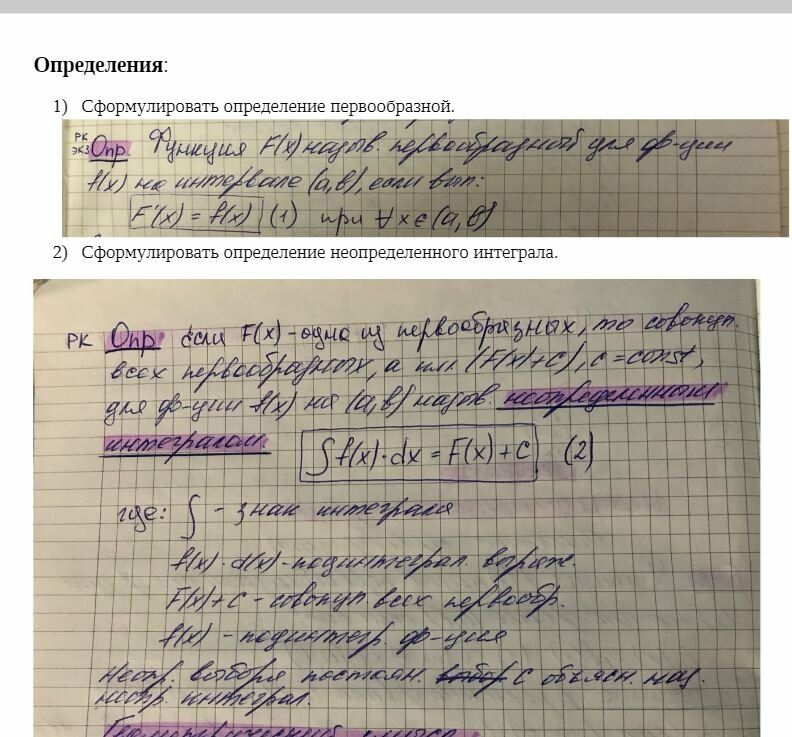 Определения:
1) Сформулировать определение первообразной.
РК
ЭКЗ Опр. Функция F(x) назыв. первообразной для ф-ции
f(x) на интервале (a,b), если вып:
F'(x) = f(x) (1) при ∀x∈(a,b)
2) Сформулировать определение неопределенного интеграла.
РК Опр Если F(x) - одна из первообразных, то совокуп.
всех первообразных, а или (F(x)+C), c = const,
для ф-ции f(x) на (a,b) назыв. неопределенным
интегралом. ∫f(x)·dx = F(x)+C (2)
где: ∫ - знак интеграла
f(x)·d(x) - подинтеграл. выраж.
F(x)+C - совокуп всех первообр.
f(x) - подинтегр. ф-ция
Неопр. выбора постоян. C объясн. наз.
неопр. интеграл.
Геометрический смысл